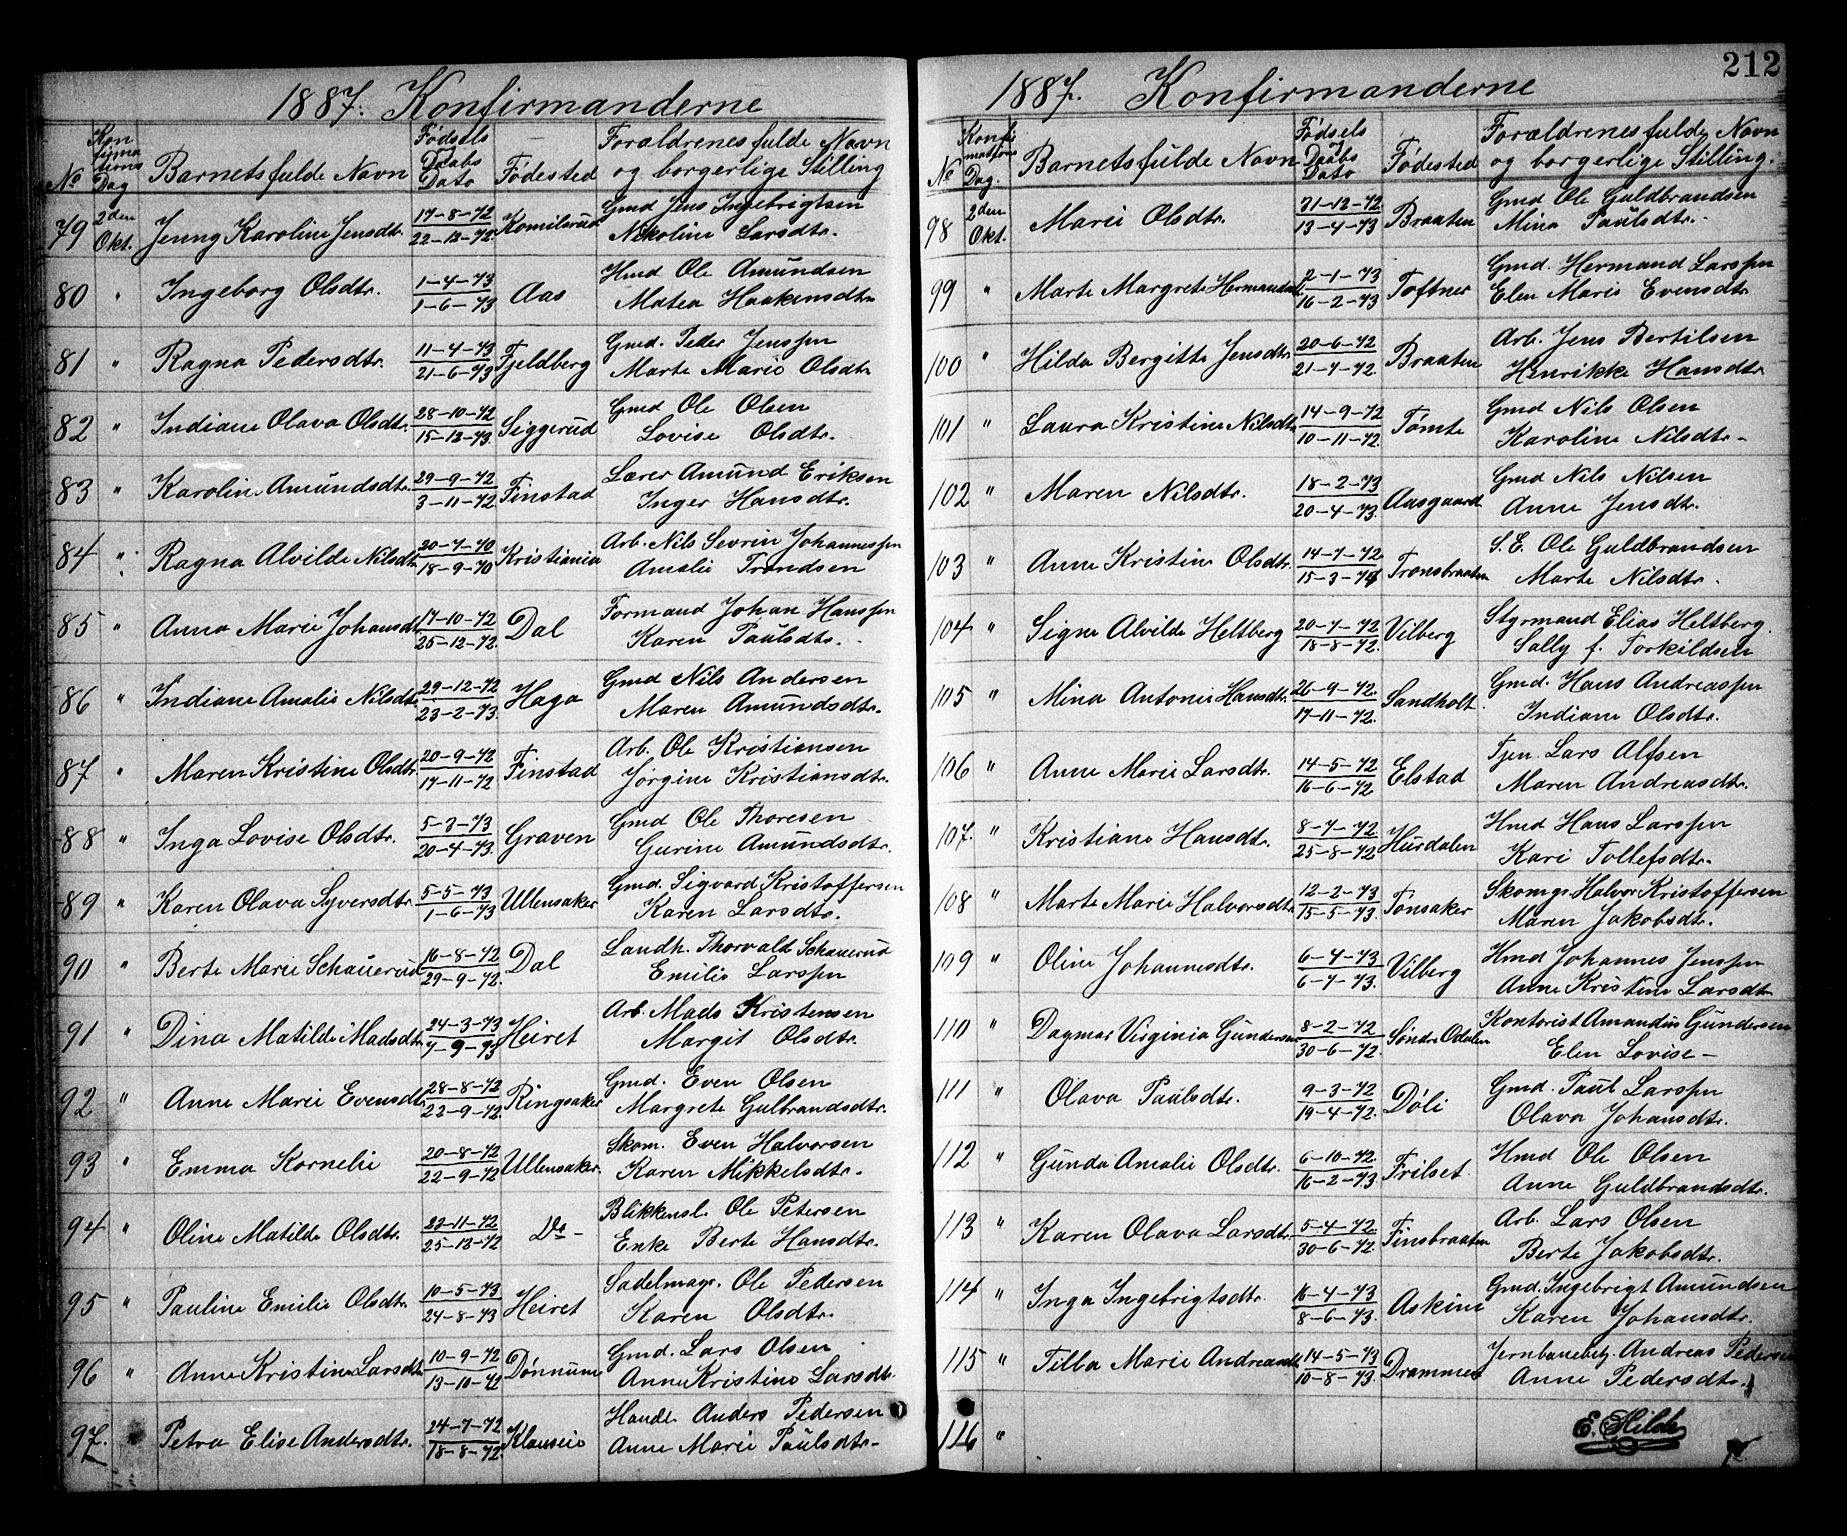 212
1887. Konfirmanderne
No Konfirmations Dag Barnets fulde Navn Fødsels Daabs Dato Fødested Forældrenes fulde Navn og borgerlige Stilling
79 2den Okt. Jenny Karoline Jensdtr. 17-8-72 22-12-72. Komilsrud Gmd Jens Ingebrigtsen
Nikoline Larsdtr.
80 " Ingeborg Olsdtr. 1-4-73 1-6-73 Aas Hmd Ole Amundsen
Matea Haakensdtr
81 " Ragna Pedersdtr. 11-4-73 21-6-73 Fjeldberg Gmd. Peder Jenssen
Marte Marie Olsdtr
82 " Indiane Olava Olsdtr. 28-10-72 15-12-73. Siggerud Gmd Ole Olsen
Lovise Olsdtr.
83 " Karoline Amundsdtr. 29-9-72 3-11-72. Finstad Lærer Amund Eriksen
Inger Hansdtr.
84 " Ragna Alvilde Nilsdtr 20-7-70 18-9-70 Kristiania Arb. Nils Sevrin Johannessen
Amalie Trondsen
85 " Anna Marie Johansdtr 17-10-72 25-12-72. Dal Formand Johan Hanssen
Karen Paulsdtr.
86 " Indiane Amalie Nilsdtr 29-12-72 23-2-73. Haga Gmd Nils Andersen
Maren Amundsdtr.
87 " Maren Kristine Olsdtr 20-9-72 17-11-72 Finstad Arb. Ole Kristiansen
Jørgine Kristiansdtr.
88 " Inga Lovise Olsdtr. 5-3-73 20-4-73. Graven Gmd Ole Thoresen
Gurine Amundsdtr.
89 " Karen Olava Syversdtr 5-5-73 1-6-73 Ullensaker Gmd. Sigvard Kristoffersen
Karen Larsdtr.
90 " Berte Marie Schauerud 16-8-72 29-9-72. Dal Landh. Thorvald Schauerud
Emilie Larssen
91 " Dina Matilde Madsdtr 24-3-73 7-9-73 Heiret Arb. Mads Kristensen
Margit Olsdtr.
92 " Anne Marie Evensdtr 28-8-72 22-9-72. Ringsaker Gmd. Even Olsen
Margrete Gulbrandsdtr.
93 " Emma Kornelie 20-8-72 22-9-72 Ullensaker. Skom. Even Halvorsen
Karen Mikkelsdtr.
94 " Oline Matilde Olsdtr. 23-11-72 25-12-72 Do- Blikkensl. Ole Petersen
Enke Berte Hansdtr.
95 " Pauline Emilie Olsdtr. 10-5-73 24-8-73 Heiret Sadelmagr. Ole Pedersen
Karen Olsdtr.
96 " Anne Kristine Larsdtr 10-9-72 13-10-72 Dønnum Gmd. Lars Olsen
Anne Kristine Larsdtr.
97. " Petra Elise Andersdtr. 24-7-72 18-8-72. Klauseie Handl. Anders Pedersen
Anne Marie Paulsdtr-
1887. Konfirmanderne
No Konfirmations Dag. Barnets fulde Navn Fødsels og Daabs Dato Fødested Forældrenes fulde Navn og borgerlige Stilling.
98 2den Okt. Marie Olsdtr. 31-12-72 13-4-73 Braaten Gmd Ole Guldbrandsen
Mina Paulsdtr.
99 " Marte Margrete Hermandsdtr 2-1-73 16-2-73 Toftner Gmd. Hermand Larssen
Elen Marie Evensdtr
100 " Hilda Bergitte Jensdtr 20-6-72 21-7-72. Braaten Arb. Jens Bertilsen
Henrikke Hansdtr
101 " Laura Kristine Nilsdtr 14-9-72 10-11-72. Tømte Gmd Nils Olsen
Karoline Nilsdtr-
102 " Maren Nilsdtr. 18-2-73 20-4-73. Aasgaard Gmd Nils Nilsen
Anne Jensdtr.
103 " Anne Kristine Olsdtr. 14-7-72 15-3-74 Tronsbraaten S.E. Ole Guldbrandsen
Marte Nilsdtr.
104 " Signe Alvilde Heltberg 20-7-72 18-8-72. Vilberg Styrmand Elias Heltberg.
Sally f. Torkildsen
105 " Mina Antonie Hansdtr. 26-9-72. 17-11-72. Sandholt Gmd. Hans Andreassen
Indiane Olsdtr.
106 " Anne Marie Larsdtr. 14-5-72 16-6-72 Elstad Tjen Lars Alfsen
Maren Andreasdtr.
107. " Kristiane Hansdtr. 8-7-72 25-8-72 Hurdalen Hmd Hans Larssen
Kari Tollefsdtr.
108 " Marte Marie Halvorsdtr 12-2-73 15-5-73. Tønsaker Skomgr. Halvor Kristoffersen
Maren Jakobsdtr.
109 " Oline Johannesdtr. 6-4-73 6-7-73. Vilberg Hmd Johannes Jenssen
Anne Kristine Larsdtr
110 " Dagmar Virginia Gundersen 8-2-72 30-6-72. Søndre Odalen Kontorist Amandus Gundersen
Elen Lovise-
111 " Olava Paulsdtr. 9-3-72 19-4-72. Døli Gmd. Paul Larssen
Olava Johansdtr.
112 " Gunda Amalie Olsdtr. 6-10-72. 16-2-73 Frilset Hmd Ole Olsen
Anne Guldbrandsdtr.
113 " Karen Olava Larsdtr. 5-4-72. 30-6-72 Finsbraaten Arb. Lars Olsen
Berte Jakobsdtr.
114 " Inga Ingebrigtsdtr. 16-4-73 8-6-73. Askim Gmd. Ingebrigt Amundsen
Karen Johansdtr.
115 " Tilba Marie Andreasdtr 14-5-73 10-8-73. Drammen Jernbanebetj. Andreas Pedersen
Anne Pedersdtr.
116 "
E. Hilde